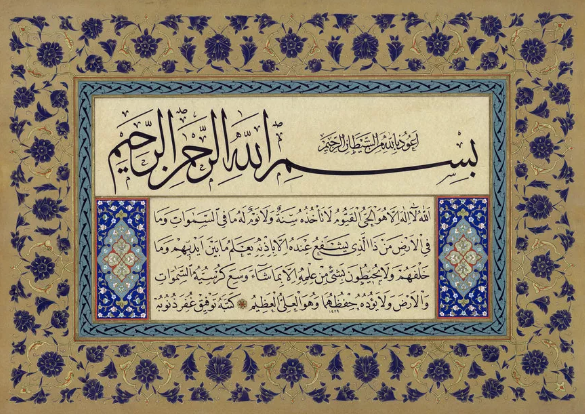 أعوذ بالله من الشيطان الرجيم
بسم الله الرحمن الرحيم
الله لا إله إلا هو الحي القيوم لا تأخذه سنة ولا نوم له ما في السموات وما
في الأرض من ذا الذي يشفع عنده إلا بإذنه يعلم ما بين أيديهم وما
خلفهم ولا يحيطون بشيء من علمه إلا بما شاء وسع كرسيه السموات
والأرض ولا يؤده حفظهما وهو العلي العظيم كتبه توفيق غفر ذنوبه